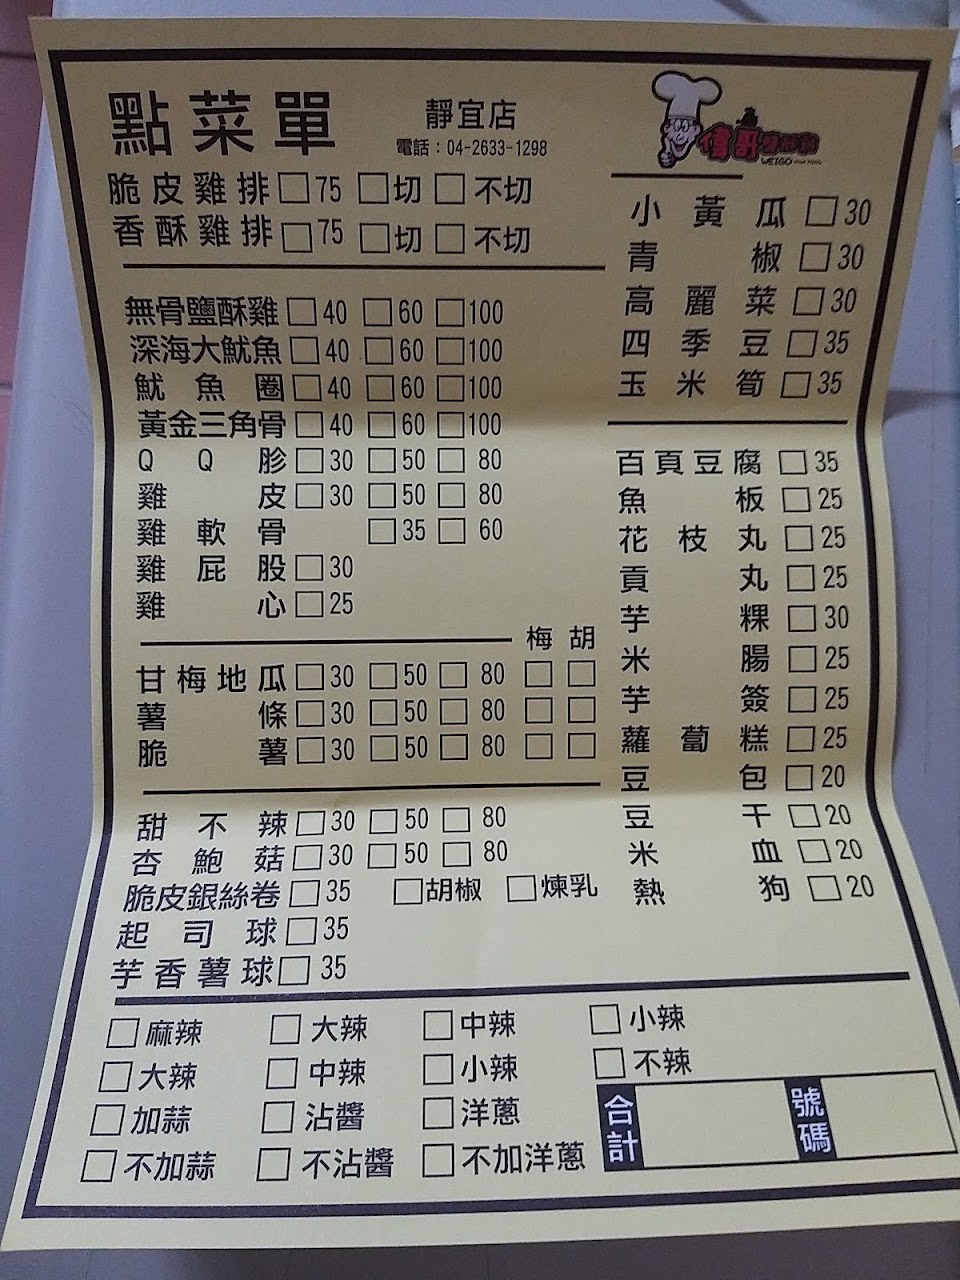 點菜單
靜宜店
電話：04-2633-1298
偉哥
WEIGO
脆皮雞排□75 □切 □不切
香酥雞排□75 □切 □不切
無骨鹽酥雞□40 □60 □100
深海大魷魚□40 □60 □100
魷魚圈□40 □60 □100
黃金三角骨□40 □60 □100
QQ胗□30 □50 □80
雞皮□30 □50 □80
雞軟骨 □35 □60
雞屁股□30
雞心□25
梅 胡
甘梅地瓜□30 □50 □80 □ □
薯條□30 □50 □80 □ □
脆薯□30 □50 □80 □ □
甜不辣□30 □50 □80
杏鮑菇□30 □50 □80
脆皮銀絲卷□35 □胡椒 □煉乳
起司球□35
芋香薯球□35
小黃瓜□30
青椒□30
高麗菜□30
四季豆□35
玉米筍□35
百頁豆腐□35
魚板□25
花枝丸□25
貢丸□25
芋粿□30
米腸□25
芋簽□25
蘿蔔糕□25
豆包□20
豆干□20
米血□20
熱狗□20
□麻辣 □大辣 □中辣 □小辣
□大辣 □中辣 □小辣 □不辣
□加蒜 □沾醬 □洋蔥
□不加蒜 □不沾醬 □不加洋蔥
合計 號碼